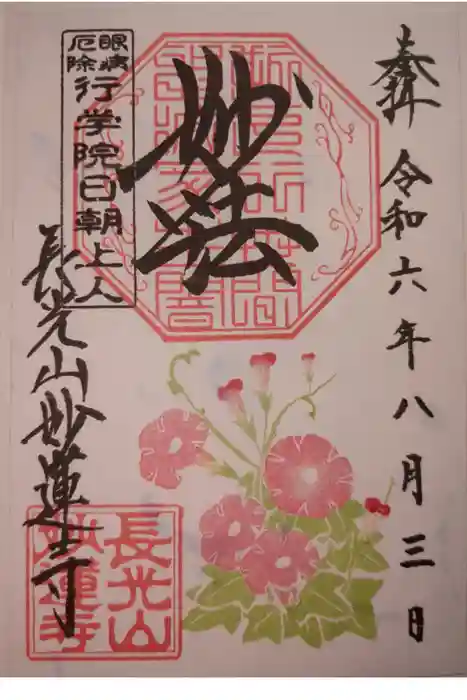 奉拝
令和六年八月三日
妙法
眼病
厄除
行学院日朝上人
長光山妙蓮寺
長光山
妙蓮寺